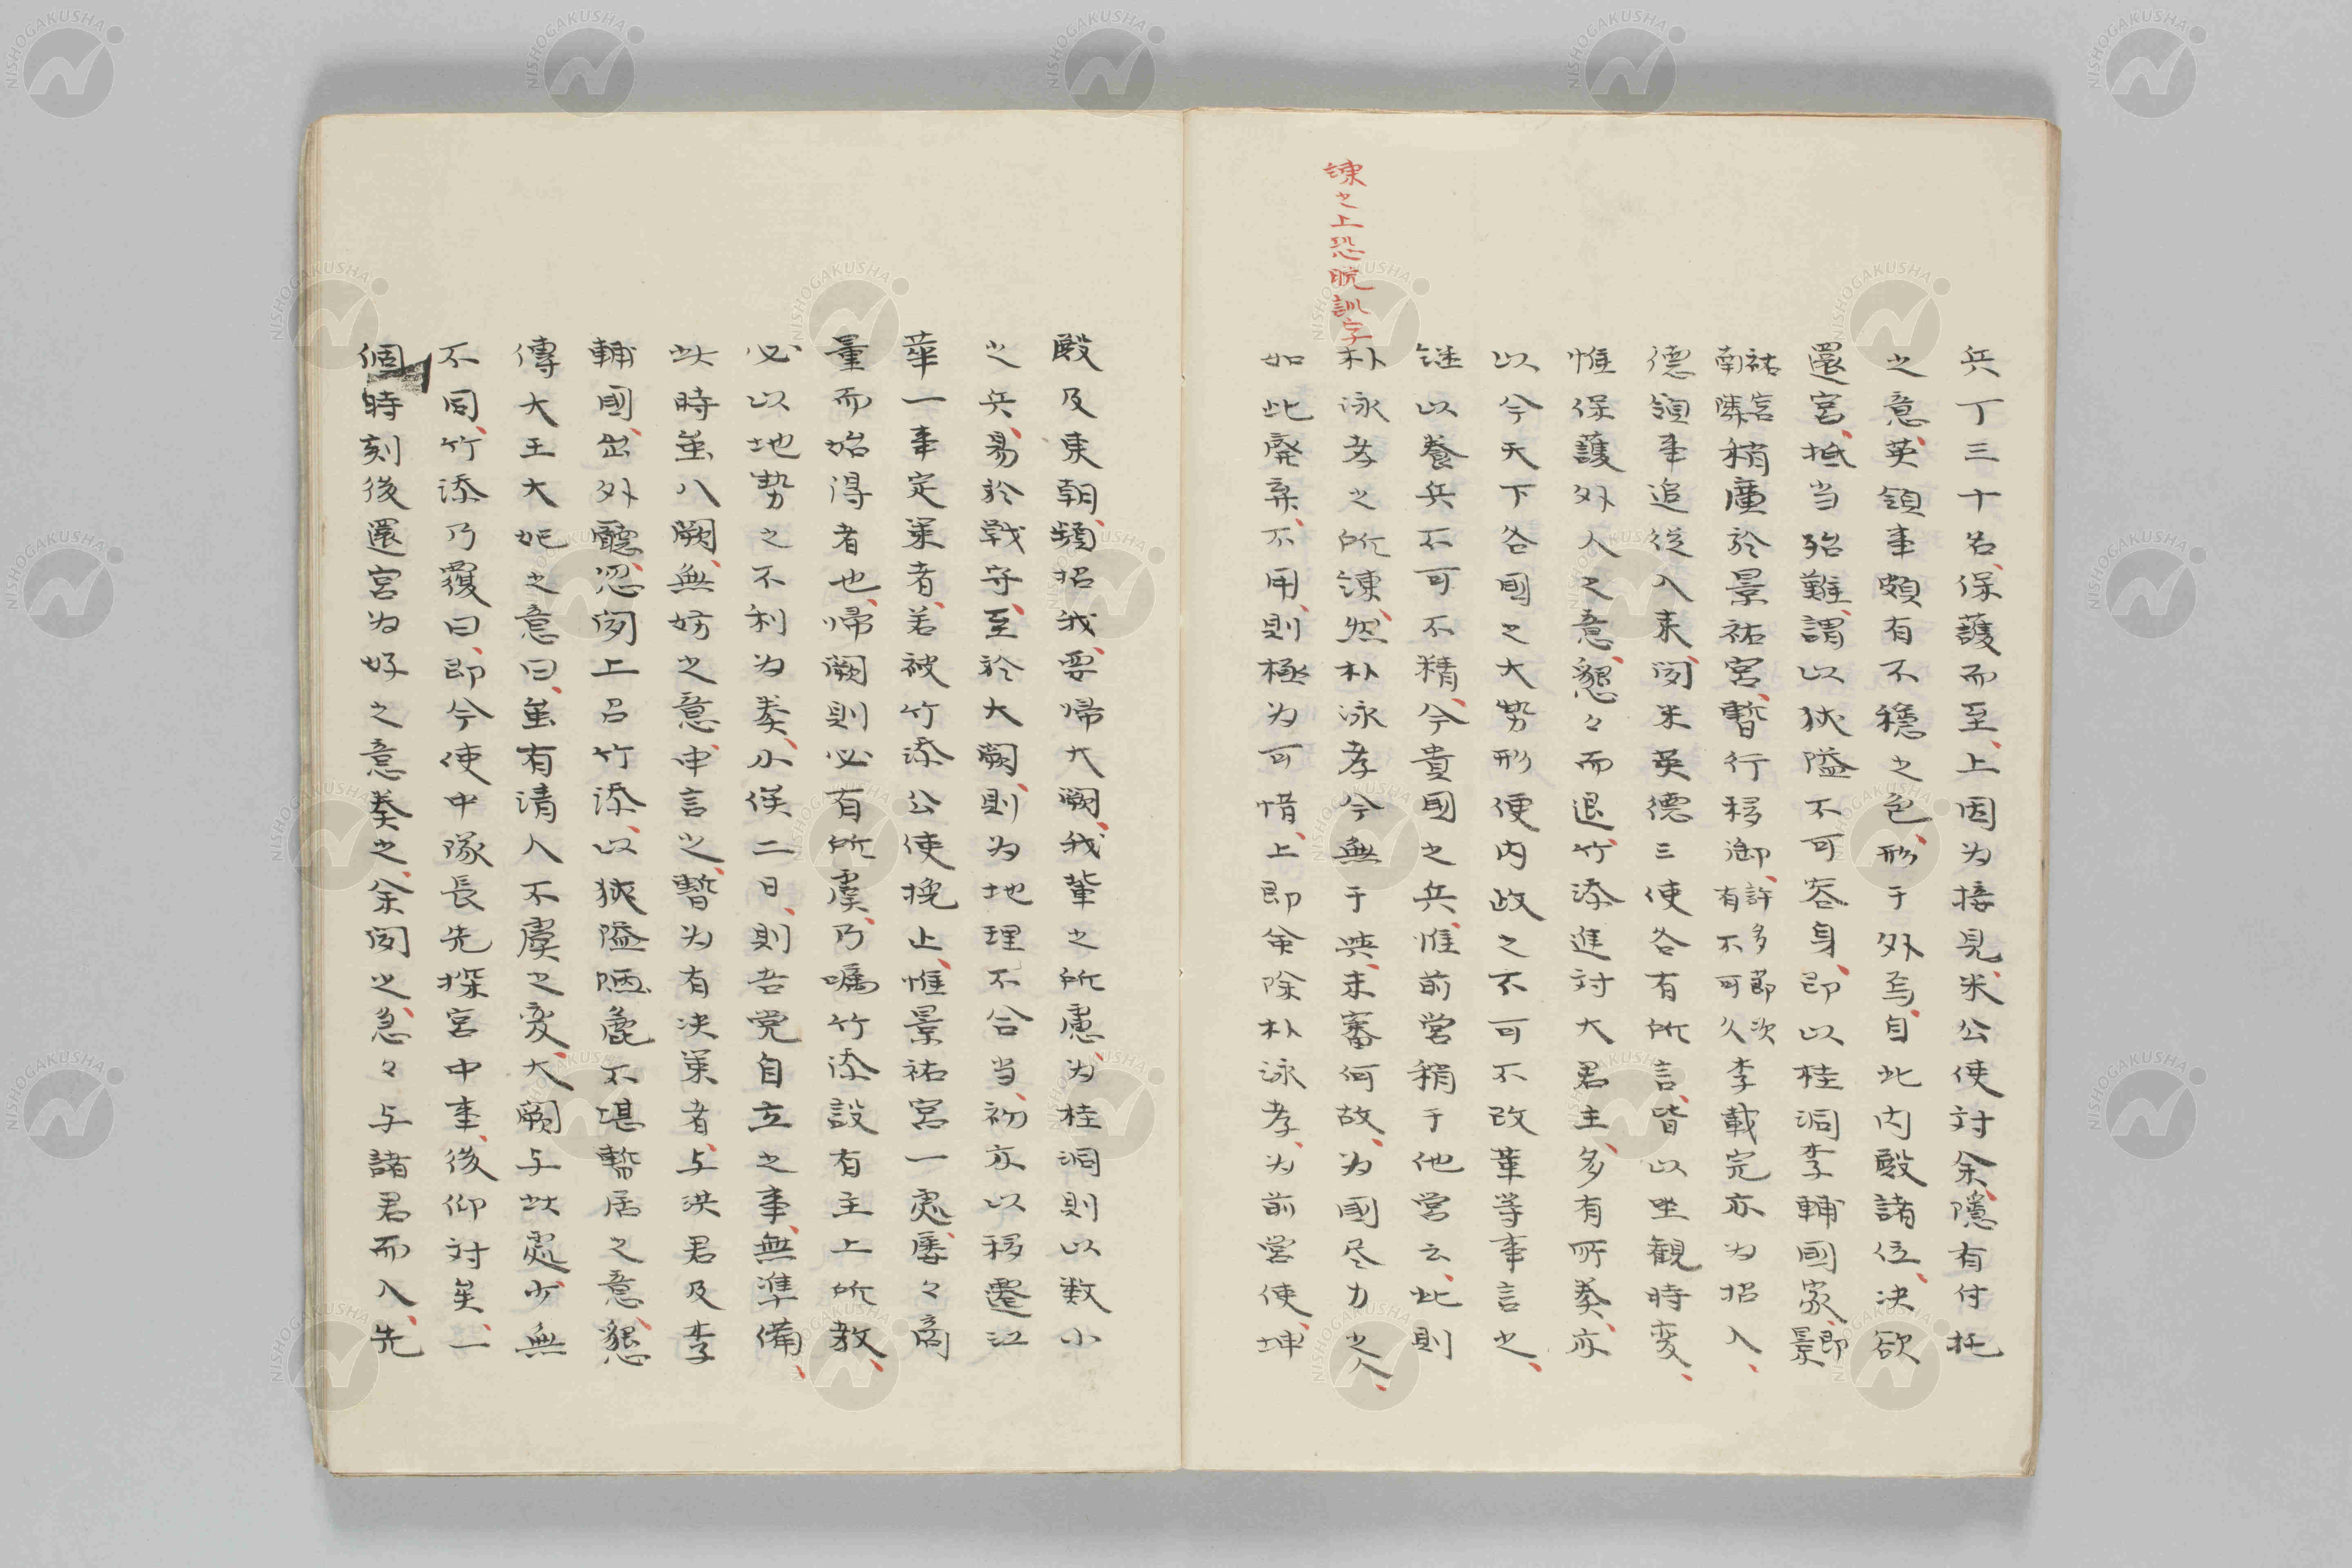 兵丁三十名、保護而至、上因為接見、米公使対余、隠有付托
之意、英領事頗有不穏之色、形于外焉、自此内殿諸位、决欲
還宮、抵当殆難、謂以狭隘不可容身、即以桂洞李輔國家、即景
祐宮南隣稍廣於景祐宮、暫行移御、許多節次有不可久李載完亦為招入、
德領事追後入来、関米英德三使各有所言、皆以坐観時変、
惟保護外人之意、懇々而退、竹添進対大君主、多有所奏、亦
以今天下各國之大勢形便内政之不可不改革等事言之、
継以養兵不可不精、今貴國之兵、惟前営稍于他営云、此則
朴泳孝之所諌、然朴泳孝今無于典、未審何故、為國尽力之人、
如此廃棄、不用、則極為可惜、上即命除朴泳孝、為前営使、坤
諌之上恐脱訓字
殿及東朝、頻招我、要帰大闕、我輩之所慮、為桂洞則以数小
之兵、易於戦守、至於大闕、則為地理不合当、初亦以移遷江
華一事定策者、若被竹添公使挽止、惟景祐宮一處、屡々商
量而始得者也、帰闕則必有所虞、乃嘱竹添設有主上所教、
必以地勢之不利為奏、小俟二日、則吾党自立之事、無準備、
此時虽入闕、無妨之意、申言之、暫為有决策者、与洪君及李
輔國、出外聽、忽関上召竹添、以狭隘陋麁不堪暫居之意、懇
傳大王大妃之意曰、虽有清人不虞之変、大闕与此處少無
不同、竹添乃覆曰、即今使中隊長先探宮中事、後仰対矣、一
個時刻後還宮為好之意奏之、余関之、急々与諸君而入、先